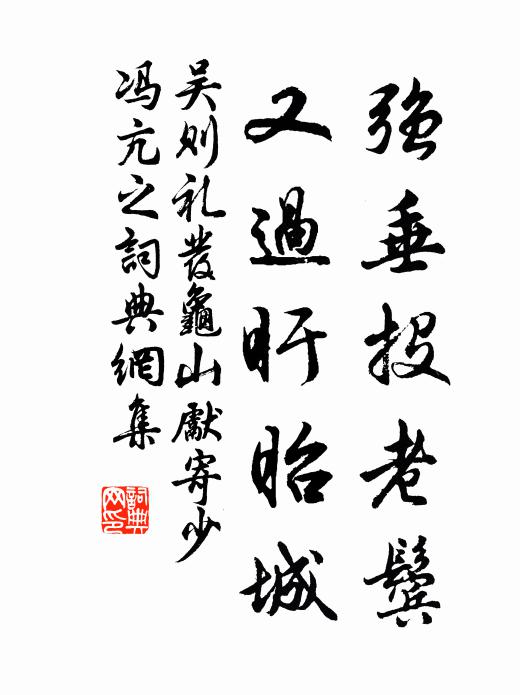 强垂投老鬓
又過盱眙城
吴则礼 發龜山獻寄少
冯亢之 詞典網集
詞典网印